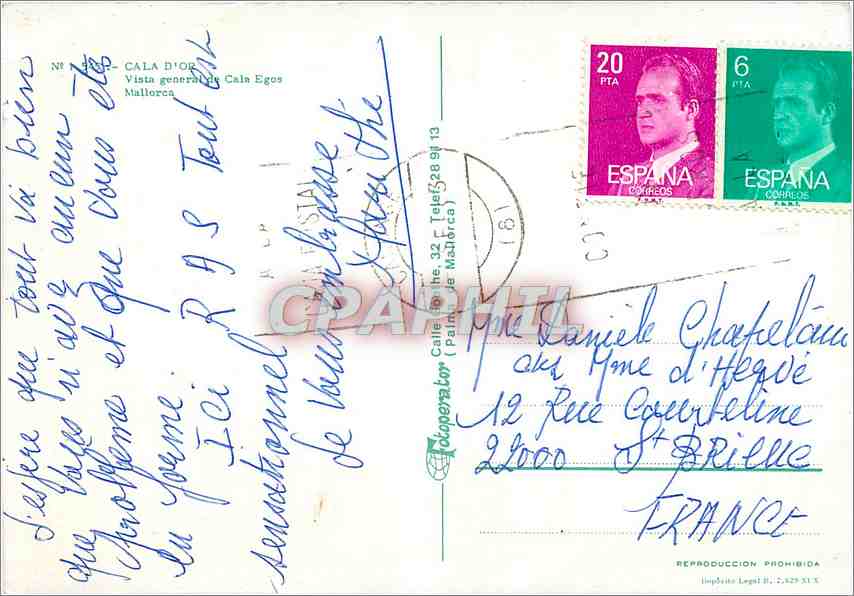 CALA D'OR
Vista general de Cala Egos
Mallorca
J'espère que tout va bien
que vous n'avez aucun
problème et que vous êtes
en forme.
Ici R A S Tout est
sensationnel
de vous embrasse
Fotoperator Calle 32 - Telef. 28 91 13
( Palma de Mallorca )
20
PTA
ESPAÑA
CORREOS
F.N.M.T.
6
PTA
ESPAÑA
CORREOS
F.N.M.T.
CPAPHIL
Mme Danièle Chapelain
chz Mme d'Hervé
12 Rue Courteline
22000 St BRIEUC
FRANCE
REPRODUCCION PROHIBIDA
Depósito Legal B. 7.629 XI X